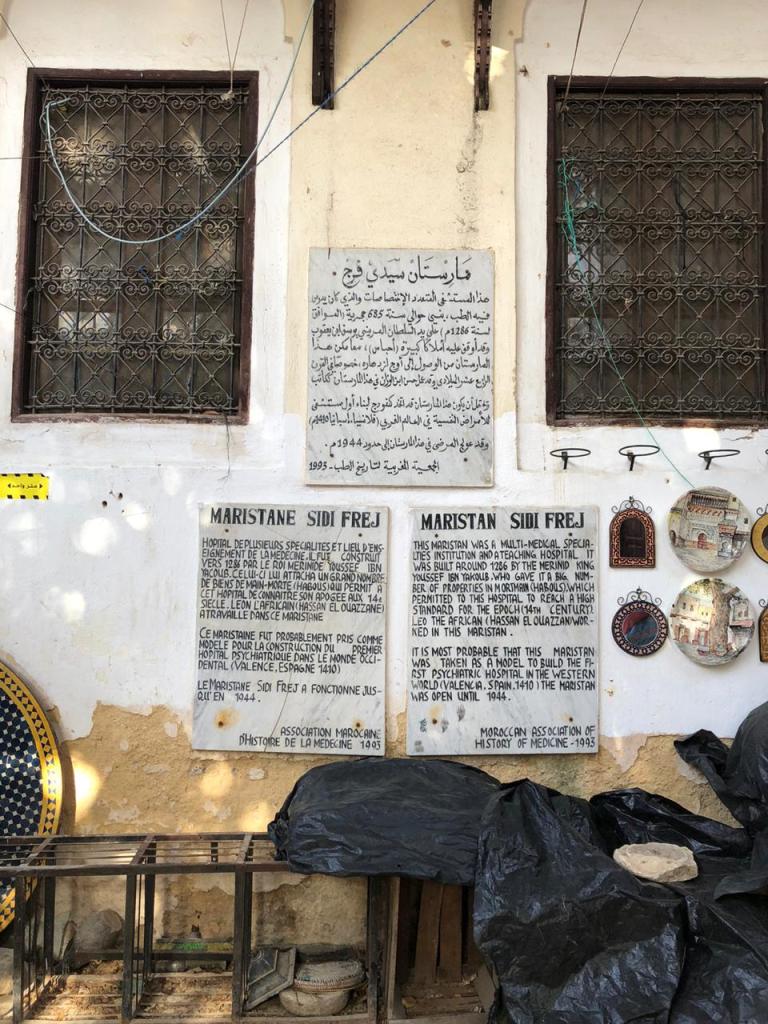 مارستان سيدي فرج
هذا المستشفى المتعدد الإختصاصات والذي كان يدرس
فيه الطب، بني حوالي سنة 685 هجرية (الموافق
لسنة 1286م) على يد السلطان المريني يوسف بن يعقوب
وقد أوقف عليه أملاكا كبيرة (أحباس)، مما مكن هذا
المارستان من الوصول إلى أوج ازدهاره، خصوصا في القرن
الرابع عشر الميلادي وقد عمل حسن ابن الوزان في هذا المارستان ككاتب
يحتمل أن يكون هذا المارستان قد اتخذ كنموذج لبناء أول مستشفى
للأمراض النفسية في العالم الغربي (فلانسيا، أسبانيا 1410)
وقد عولج المرضى في هذا المارستان إلى حدود 1944م.
الجمعية المغربية لتاريخ الطب - 1993
MARISTANE SIDI FREJ
HOPITAL DE PLUSIEURS SPECIALITES ET LIEU D'ENS
EIGNEMENT DE LA MEDECINE. IL FUT CONSTRUIT
VERS 1286 PAR LE ROI MERINIDE YOUSSEF IBN
YACOUB. CELUI-CI LUI ATTACHA UN GRAND NOMBRE
DE BIENS DE MAIN-MORTE (HABOUS) QUI PERMIT A
CET HOPITAL DE CONNAITRE SON APOGEE AUX 14e
SIECLE. LEON L'AFRICAIN (HASSAN EL OUAZZANE)
A TRAVAILLE DANS CE MARISTANE
CE MARISTAINE FUT PROBABLEMENT PRIS COMME
MODELE POUR LA CONSTRUCTION DU PREMIER
HOPITAL PSYCHIATRIQUE DANS LE MONDE OCCI-
DENTAL (VALENCE, ESPAGNE 1410)
LE MARISTANE SIDI FREJ A FONCTIONNE JUS-
QU'EN 1944.
ASSOCIATION MAROCAINE
D'HISTOIRE DE LA MEDECINE 1993
MARISTAN SIDI FREJ
THIS MARISTAN WAS A MULTI-MEDICAL SPECIA-
LTIES INSTITUTION AND A TEACHING HOSPITAL. IT
WAS BUILT AROUND 1286 BY THE MERINID KING
YOUSSEF IBN YAKOUB. WHO GAVE IT A BIG NUM-
BER OF PROPERTIES IN MORTMAIN (HABOUS), WHICH
PERMITTED TO THIS HOSPITAL TO REACH A HIGH
STANDARD FOR THE EPOCH (14TH CENTURY).
LEO THE AFRICAN (HASSAN EL OUAZZAN) WOR-
KED IN THIS MARISTAN.
IT IS MOST PROBABLE THAT THIS MARISTAN
WAS TAKEN AS A MODEL TO BUILD THE FI-
RST PSYCHIATRIC HOSPITAL IN THE WESTERN
WORLD (VALENCIA. SPAIN. 1410) THE MARISTAN
WAS OPEN UNTIL 1944.
MOROCCAN ASSOCIATION OF
HISTORY OF MEDICINE - 1993
متر واحد